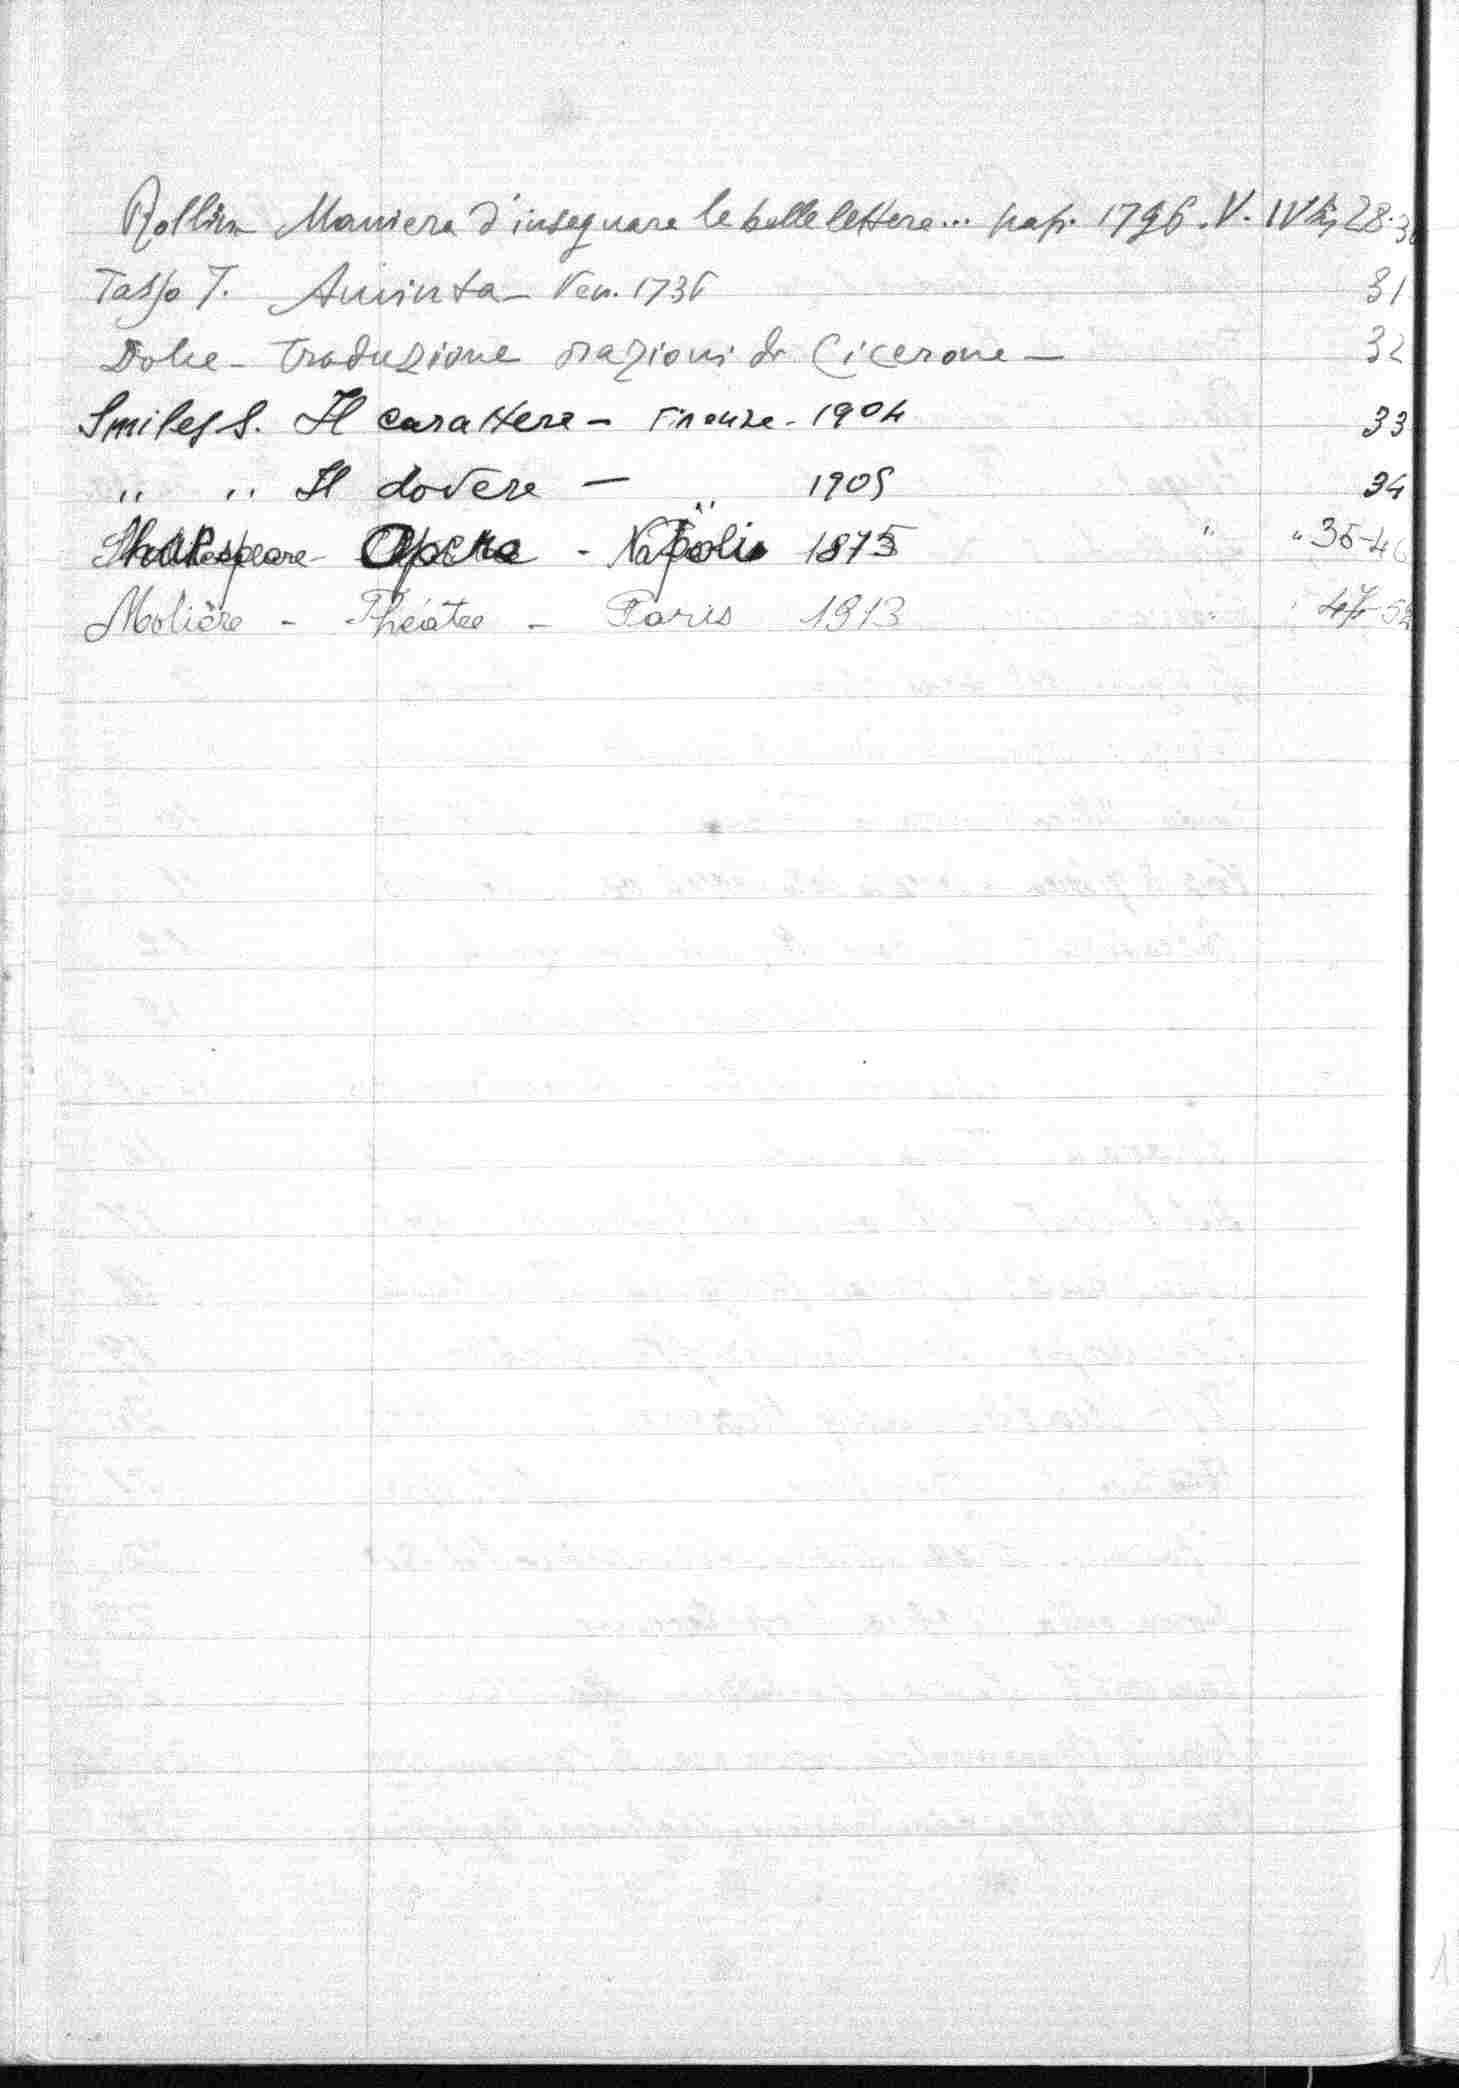 Rollin Maniera d'insegnare le belle lettere... nap. 1796. V. IV 28-30
Tasso T. Aminta - Ven. 1736 31
Dolce - Traduzione orazioni di Cicerone - 32
Smiles S. Il carattere - Firenze - 1904 33
" " Il dovere - " 1905 34
Shakespeare - Opere - Napoli 1875 " " 35-46
Molière - Théatre - Paris 1913 " " 47-52